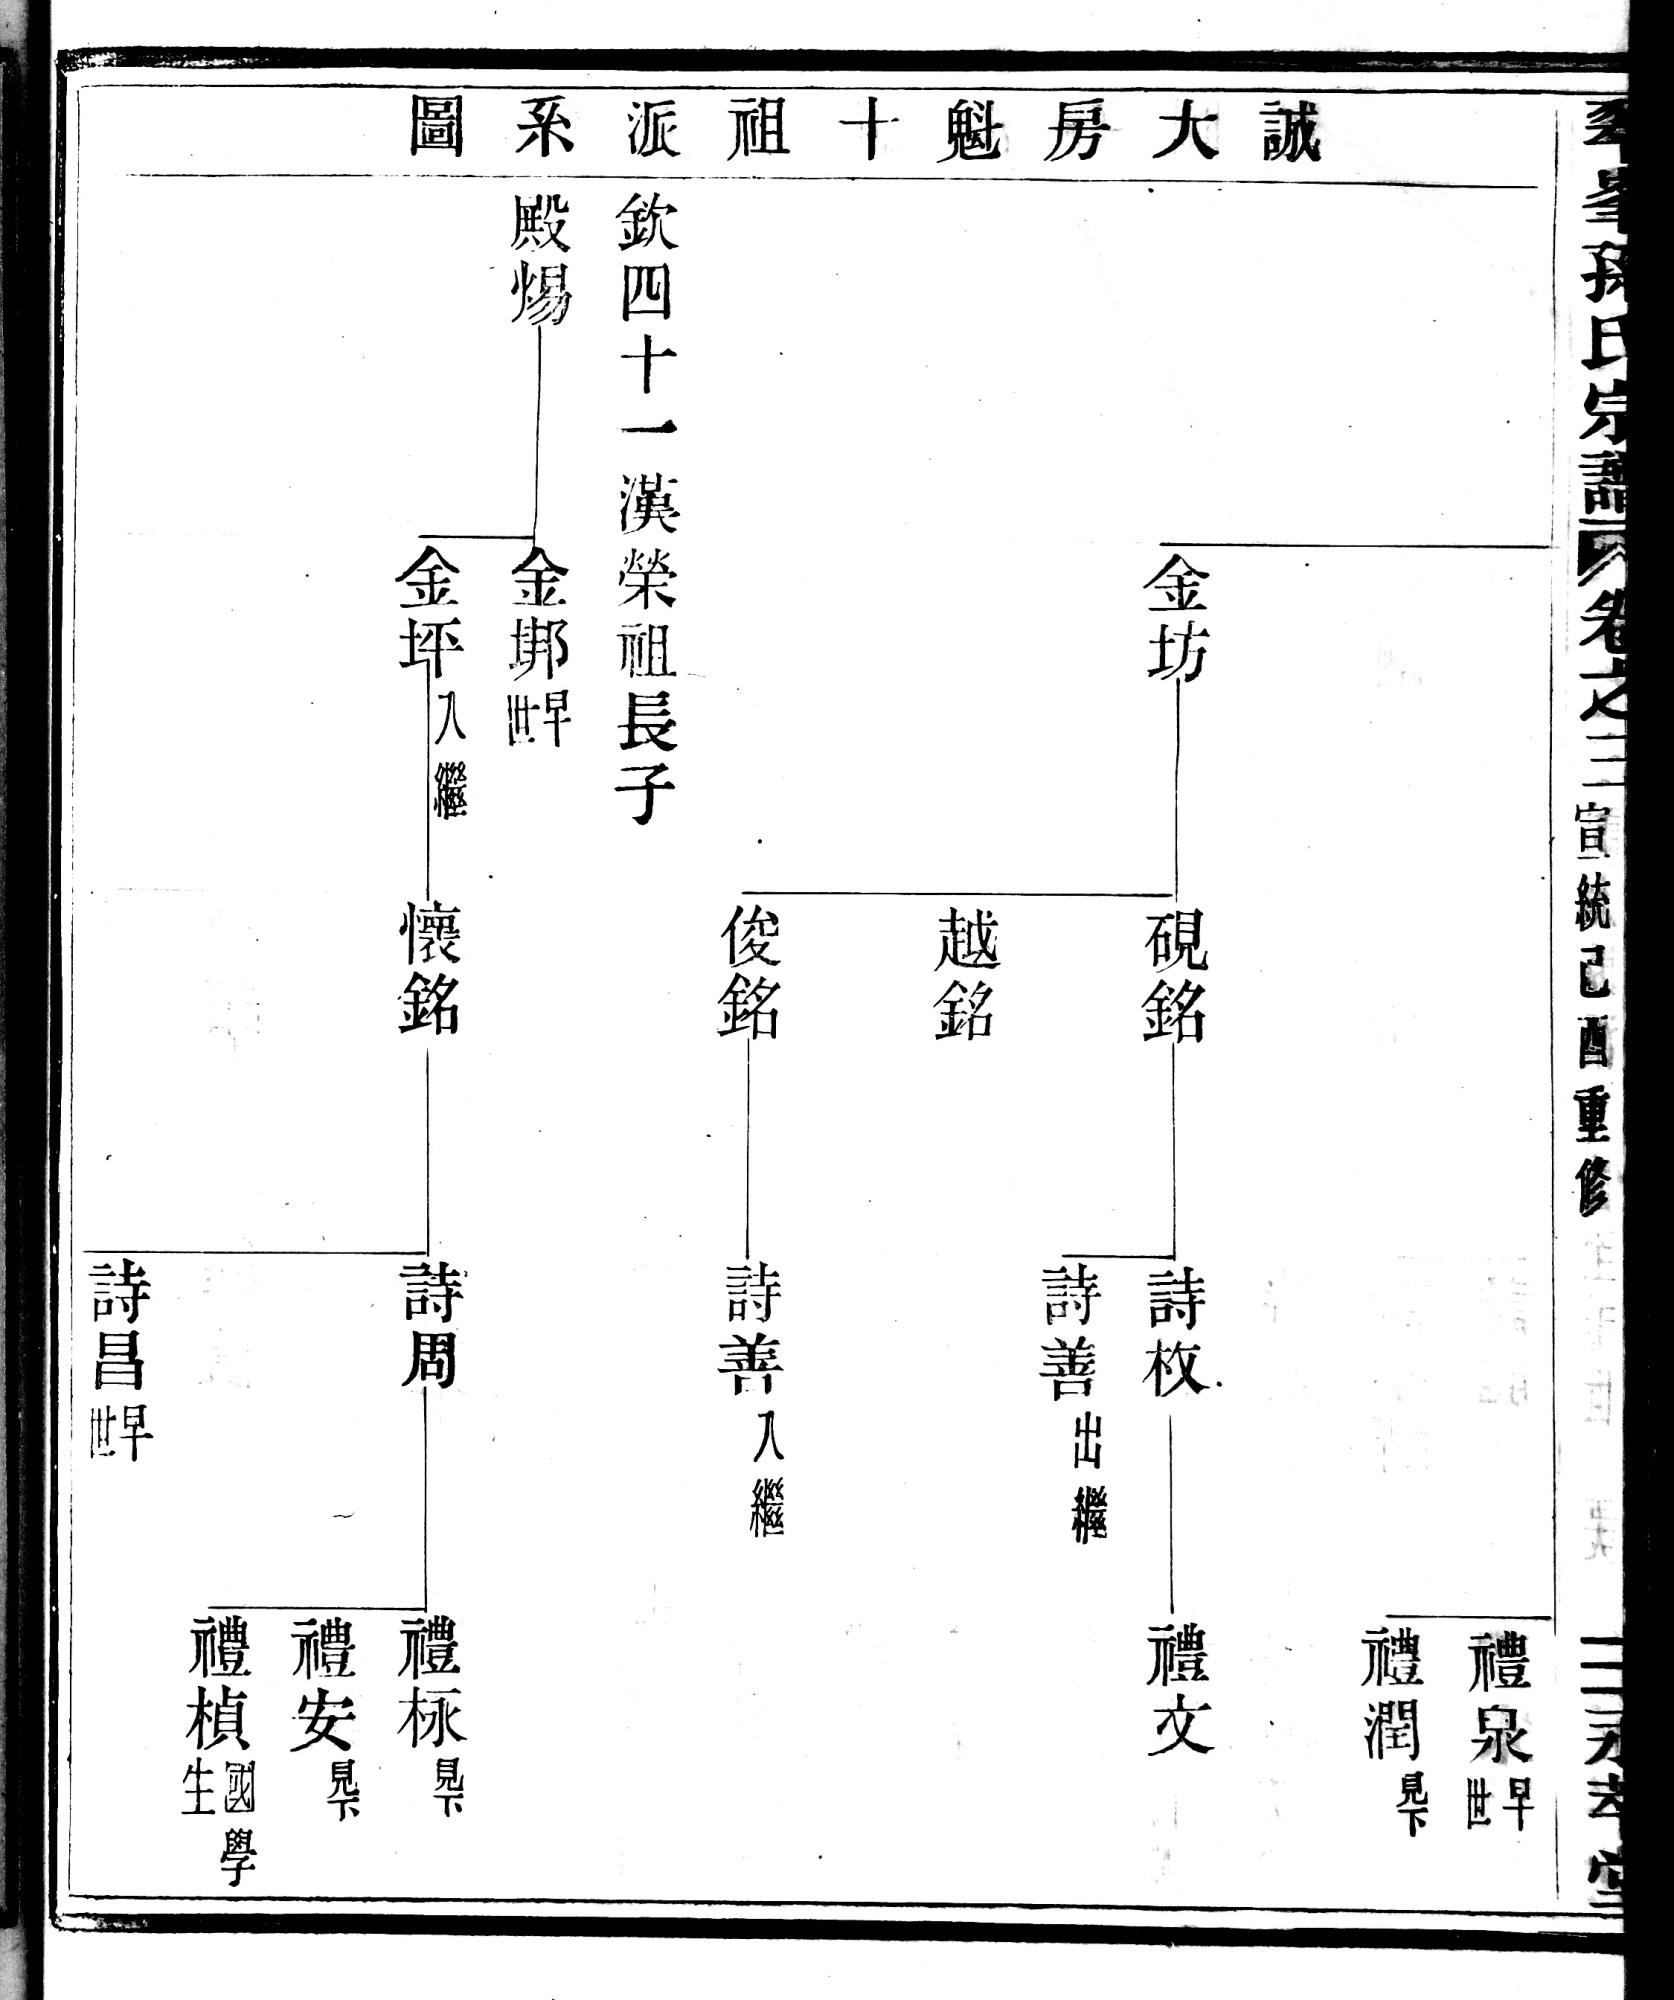 孫氏宗譜 卷之三 宣統己酉重修
堂
誠大房魁十祖派系圖
禮泉早世
禮潤見下
金坊
硯銘
詩枚
禮文
詩善出繼
越銘
俊銘
詩善入繼
欽四十一漢榮祖長子
殿惕
金𡊢早世
金坪入繼
懷銘
詩周
禮栐見下
禮安見下
禮楨國學生
詩昌早世